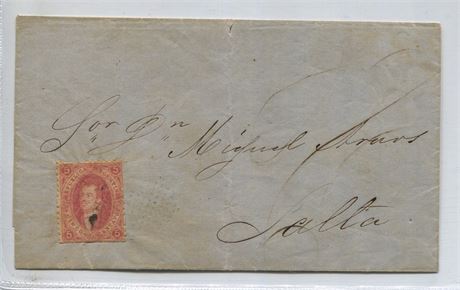 Sor Dn Miguel Araos
Salta
5 5
5 5